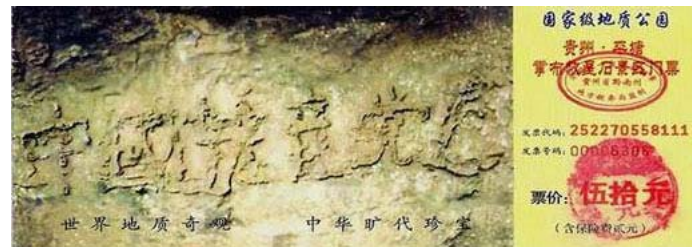 中国共产党亡
世界地质奇观 中华旷代珍宝
国家级地质公园
贵州·平塘
掌布藏字石景区门票
贵州省黔南州
发票代码:252270558111
发票号码:00006306
票价:伍拾元
(含保险费贰元)